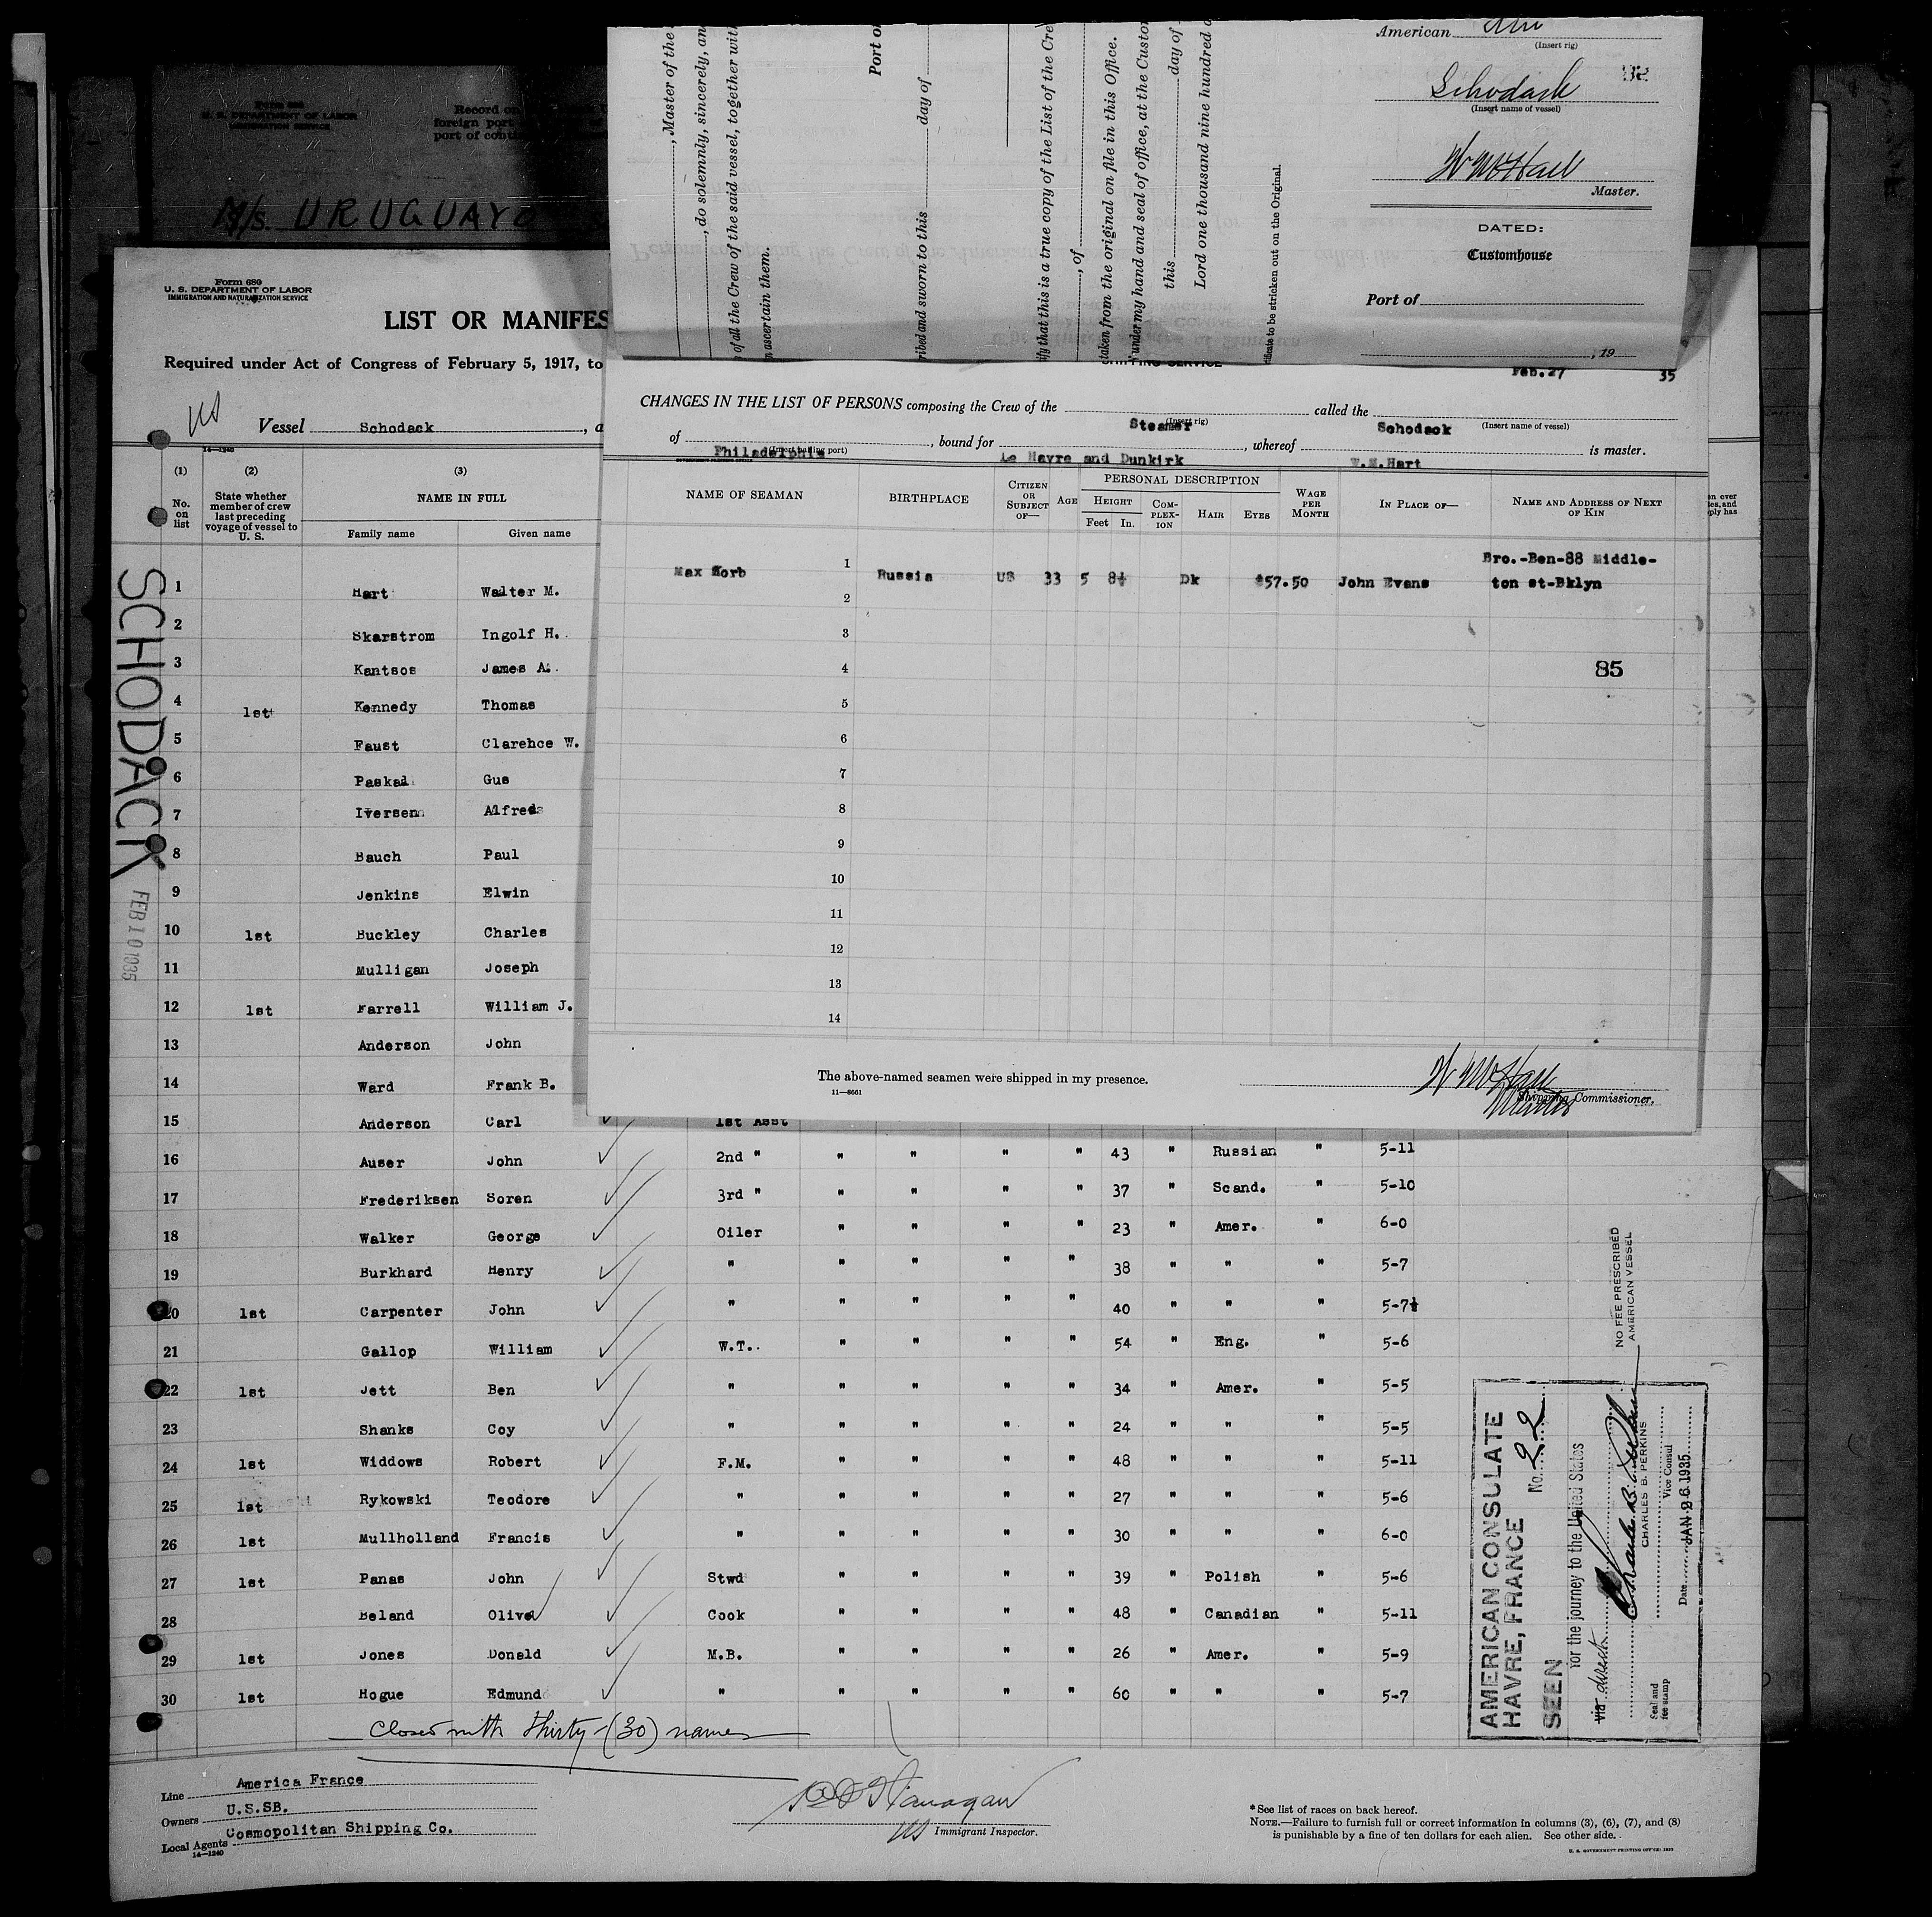 Form 680
U. S. DEPARTMENT OF LABOR
IMMIGRATION SERVICE
Record on
foreign port
port of
M/s. URUGUAYO
, Master of the
, do solemnly, sincerely, an
of all the Crew of the said vessel, together wit
ascertain them.
Port o
day of
ribed and sworn to this
ify that this is a true copy of the List of the Cre
, of
taken from the original on file in this Office.
under my hand and seal of office, at the Custo
this day of
Lord one thousand nine hundred
tificate to be stricken out on the Original.
American
(Insert rig)
Schodack
(Insert name of vessel)
Master.
DATED:
Customhouse
Port of
, 19
Form 680
U. S. DEPARTMENT OF LABOR
IMMIGRATION AND NATURALIZATION SERVICE
LIST OR MANIFES
Required under Act of Congress of February 5, 1917, to
US
Vessel Schodack , a
14—1240
SHIPPING SERVICE
Feb.27 35
CHANGES IN THE LIST OF PERSONS composing the Crew of the Steamer called the Schodack
(Insert rig) (Insert name of vessel)
of Philadelphia , bound for Le Havre and Dunkirk , whereof W.M.Hart is master.
(Insert hailing port)
NAME OF SEAMAN BIRTHPLACE CITIZEN OR SUBJECT OF— AGE PERSONAL DESCRIPTION HEIGHT Feet In. COMPLEXION HAIR EYES WAGE PER MONTH IN PLACE OF— NAME AND ADDRESS OF NEXT OF KIN
1 Max Korb Russia US 33 5 8½ Dk $57.50 John Evans Bro.-Ben-88 Middle-
ton st-Bklyn
2
3
4 85
5
6
7
8
9
10
11
12
13
14
The above-named seamen were shipped in my presence.
11—8661
Shipping Commissioner.
Master
(1) (2) (3)
No. on list State whether member of crew last preceding voyage of vessel to U. S. NAME IN FULL
Family name Given name
SCHODACK
FEB 10 1935
1 Hart Walter M.
2 Skarstrom Ingolf H.
3 Kantsos James A.
4 1st Kennedy Thomas
5 Faust Clarence W.
6 Paskal Gus
7 Iversen Alfred
8 Bauch Paul
9 Jenkins Elwin
10 1st Buckley Charles
11 Mulligan Joseph
12 1st Farrell William J.
13 Anderson John
14 Ward Frank B.
15 Anderson Carl 1st Asst
16 Auser John 2nd " " " " " 43 " Russian " 5-11
17 Frederiksen Soren 3rd " " " " " 37 " Scand. " 5-10
18 Walker George Oiler " " " " 23 " Amer. " 6-0
19 Burkhard Henry " " " " " 38 " " " 5-7
20 1st Carpenter John " " " " " 40 " " " 5-7½
21 Gallop William W.T. " " " " 54 " Eng. " 5-6
22 1st Jett Ben " " " " " 34 " Amer. " 5-5
23 Shanks Coy " " " " " 24 " " " 5-5
24 1st Widdows Robert F.M. " " " " 48 " " " 5-11
25 1st Rykowski Teodore " " " " " 27 " " " 5-6
26 1st Mullholland Francis " " " " " 30 " " " 6-0
27 1st Panas John Stwd " " " " 39 " Polish " 5-6
28 Beland Olive Cook " " " " 48 " Canadian " 5-11
29 1st Jones Donald M.B. " " " " 26 " Amer. " 5-9
30 1st Hogue Edmund " " " " " 60 " " " 5-7
Closed with thirty-(30) names
NO FEE PRESCRIBED
AMERICAN VESSEL
AMERICAN CONSULATE
HAVRE, FRANCE
No. 22
SEEN
For the journey to the United States
via direct
CHARLES B. PERKINS
Vice Consul
Date JAN 26 1935
Seal and
fee stamp
Line America France
Owners U.S.SB.
Local Agents Cosmopolitan Shipping Co.
14—1240
US Immigrant Inspector.
*See list of races on back hereof.
NOTE.—Failure to furnish full or correct information in columns (3), (6), (7), and (8)
is punishable by a fine of ten dollars for each alien. See other side.
U. S. GOVERNMENT PRINTING OFFICE: 1933